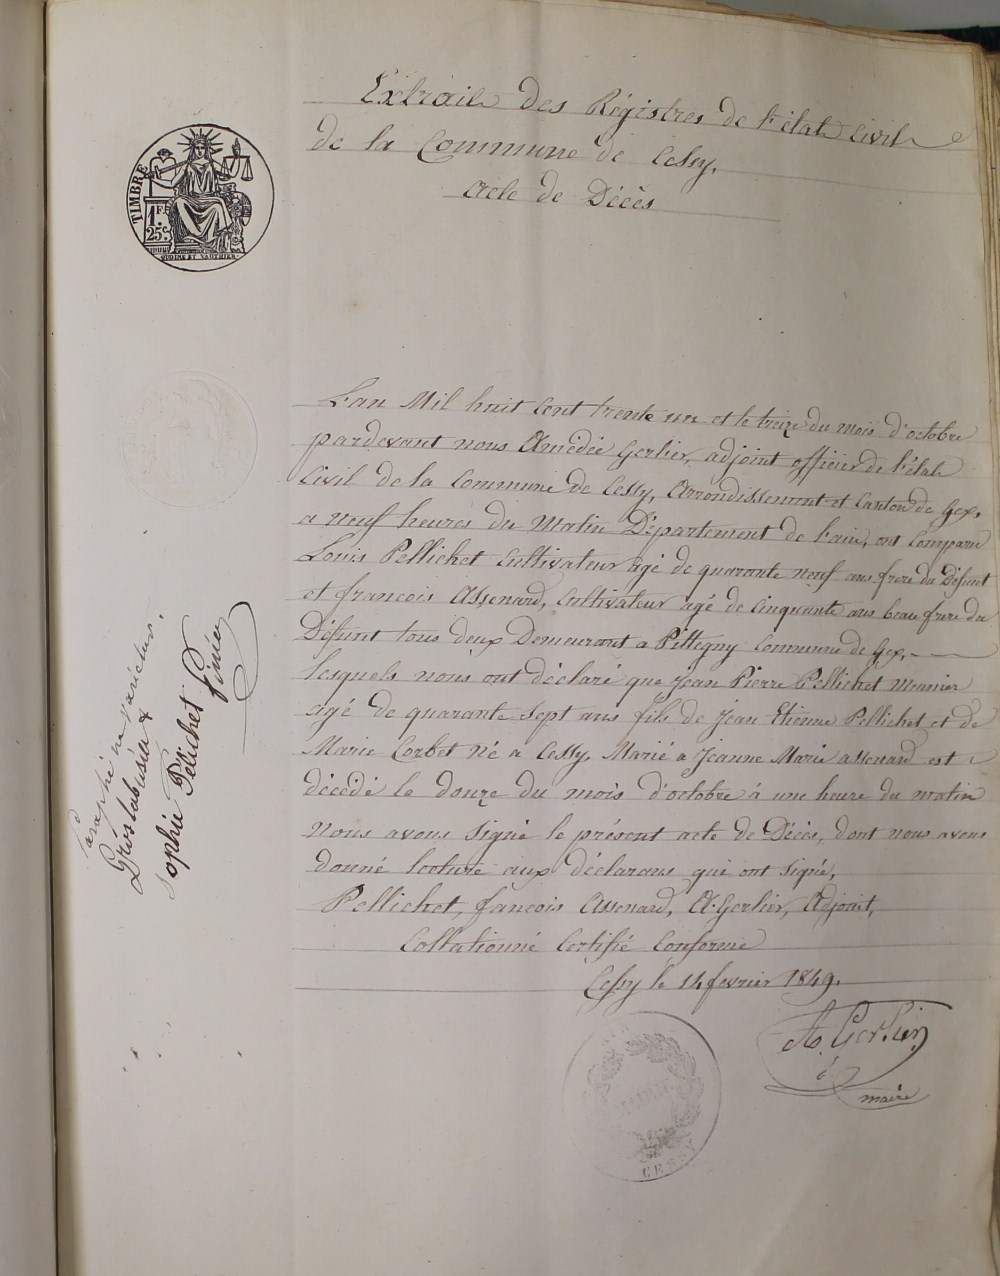 Extrait des Régistres de l'état Civil
de la Commune de Cessy.
Acte de Décès
TIMBRE
1 F.
25c.
L'an Mil huit Cent trente un et le treize du mois d'octobre
pardevant nous Amédée Gerlier, adjoint officier de l'état
Civil de la Commune de Cessy, Arrondissement et Canton de Gex,
a neuf heures du Matin Département de l'ain, ont Comparu
Louis Pellichet Cultivateur agé de quarante neuf ans frere du Défunt
et francois Assenard, Cultivateur agé de Cinquante ans beau frere du
Défunt tous deux Demeurant a Pittegny Commune de Gex,
lesquels nous ont déclaré que Jean Pierre Pellichet Meunier
agé de quarante Sept ans fils de Jean Etienne Pellichet et de
Marie Corbet né a Cessy, Marié a Jeanne Marie assenard est
décédé le douze du mois d'octobre à une heure du matin
Nous avons Signé le présent acte de Décès, dont nous avons
donné lecture aux déclarans qui ont Signé,
Pellichet, fancois Assenard, A. Gerlier, Adjoint,
Collationné Certifié Conforme
Cessy le 14 fevrier 1849.
A. Gerlier
maire
CESSY
Paraphé ne varietur.
Sophie Pélichet